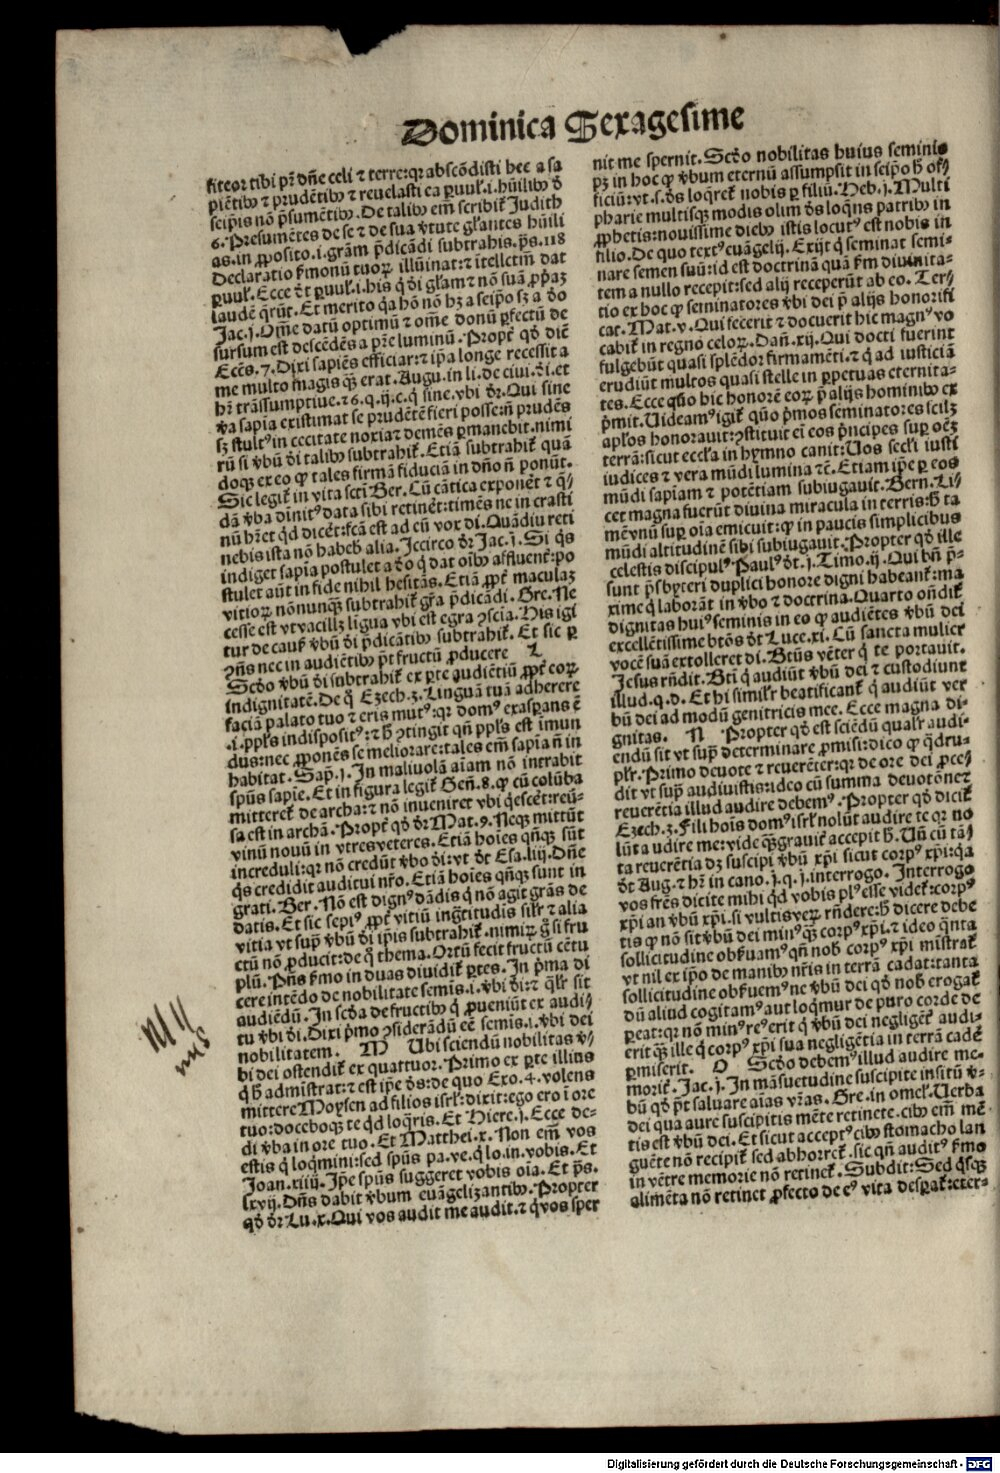 Dominica Sexagesime
fiteor tibi pr̄ dn̄e celi ⁊ terre: qꝛ abscōdisti hec a sa
piētibꝰ ⁊ prudētibꝰ ⁊ reuelasti ea ꝑuul̓.i. hūilibꝰ ⁊
seip̄is nō p̄sumētibꝰ. De talibꝰ em̄ scribit̃ Judith
6. Presumētes de se ⁊ de sua v̓tute gl̓antes hūili
as. in ꝓposito .i. grām p̄dicādi subtrahis. p̄s. 118
Declaratio ẜmonū tuoꝝ illūinat: ⁊ ītellectū dat
ꝑuul̓. Ecce d̓t ꝑuul̓.i. his q̇ d̓i gl̓am ⁊ nō suā ꝓp̓iaꝫ
laudē q̄rūt. Et merito q̇a hō nō hꝫ a seip̄o sꝫ a d̓o
Jac. j. Om̄e datū optimū ⁊ om̄e donū ꝑfectū de
sursum est descēdēs a pr̄e luminū. Propt̓ qd̓ dic̄
Eccs̄. 7. Dixi sapiēs efficiar: ⁊ ip̄a longe recessit a
me multo magis qꝫ erat. Augu. in li. de ciui. d̓i. et
hr̄ trāssumptiue. ⁊ 6. q. ij. c. q̇ sine. vbi dr̄. Qui sine
v̓a sapia existimat se prudētē fieri posse: n̄ prudēs
sꝫ stultꝰ in cecitate noxia ⁊ demēs ꝑmanebit. nimi
rū si v̓bū d̓i talibꝰ subtrahit̃. Etiā subtrahit̃ quā
doqꝫ ex eo ꝙ tales firmā fiduciā in dn̄o n̄ ponūt.
Sic legit̃ in vita scti Ber. Cū cātica exponēt ⁊ q̄-
dā v̓ba diuit̓ data sibi retinēt: timēs ne in crasti
nū hr̄et qd̓ dicēt: fcā est ad eū vox di. Quādiu reti
nebis ista nō habeb̓ alia. Iccirco dr̄ Jac. j. Si q̇s
indiget sapia postulet a d̓o q̇ dat oībꝰ affluent̓: po
stulet aūt in fide nihil hesitās. Etiā ꝓpt̓ maculaꝫ
vitioꝝ nōnunqꝫ subtrahit̃ gr̄a p̄dicādi. Gre. Ne
cesse est vt vacillꝫ ligua vbi est egra ꝯscia. His igi
tur de caus̓ v̓bū d̓i p̄dicātibꝰ subtrahit̃. Et sic ꝑ
ꝯn̄s nec in audiētibꝰ p̄t fructū ꝓducere L
Scd̓o v̓bū d̓i subtrahit̃ ex ꝑte audiētiū ꝓpt̓ eoꝝ
indignitatē. De q̇ Ezech. 3. Linguā tuā adherere
faciā palato tuo ⁊ eris mutꝰ: qꝛ domꝰ exasꝑans ē
.i. pplꝰs indispositꝰ: ⁊ h̓ ꝯtingit qn̄ pplꝰs est imun
dus: nec ꝓponēs se meliorare: tales em̄ sapia n̄ in
habitat. Sap. j. In maliuolā aīam nō intrabit
spūs sapie. Et in figura legit̃ Gen̄. 8. ꝙ cū colūba
mitteret̃ de archa: ⁊ nō inueniret vbi q̇escēt: reū-
sa est in archā. Propt̓ qd̓ dr̄ Mat. 9. Neqꝫ mittūt
vinū nouū in vtres veteres. Etiā hoīes qn̄qꝫ sūt
increduli: qꝛ nō credūt v̓bo d̓i: vt d̓t Esa. liij. Dn̄e
q̇s credidit auditui nr̄o. Etiā hoīes qn̄qꝫ sunt in
grati. Ber. Nō est dignꝰ dādis q̇ nō agit grās de
datis. Et sic sepiꝰ ꝓpt̓ vitiū ingr̄titudis sil̓r ⁊ alia
vitia vt sup̄ v̓bū d̓i ip̄is subtrahit̃. nimiꝝ g̓ si fru
ctū nō ꝓducit: de q̇ thema. Ortū fecit fructū cētu
plū. Pn̄s ẜmo in duas diuidit̃ ꝑtes. In p̄ma di
cere intēdo de nobilitate semīs .i. v̓bi d̓i: ⁊ q̄lr̄ sit
audiēdū. In scd̓a de fructibꝰ q̇ ꝓueniūt ex audi-
tu v̓bi d̓i. Dixi p̄mo ꝯsiderādū eē semīs .i. v̓bi dei
nobilitatem. M Ubi sciendū nobilitas v̓-
bi dei ostendit̃ ex quattuor. Primo ex ꝑte illius
q̇ h̓ admīstrat: ⁊ est ip̄e d̓s: de quo Exo. 4. volens
mittere Moysen ad filios isrl̓: dixit: ego ero i ore
tuo: doceboqꝫ te qd̓ loq̄ris. Et Hiere. j. Ecce de-
di v̓ba in ore tuo. Et Matthei. x. Non em̄ vos
estis q̇ loq̄mini: sed spūs pa. ve. q̇ lo. in. vobis. Et
Joan. xiiij. Ip̄e spūs suggeret vobis oīa. Et p̄s.
lxvij. Dn̄s dabit v̓bum euāgelizantibꝰ. Propter
qd̓ dr̄ Lu. x. Qui vos audit me audit. ⁊ q̇ vos sper
nit me spernit. Scd̓o nobilitas huius seminis
pꝫ in hoc ꝙ v̓bum eternū assumpsit in seip̄o h̓ of-
ficiū: vt .s. d̓s loq̄ret̃ nobis ꝑ filiū. Heb. j. Multi
pharie multisqꝫ modis olim d̓s loq̄ns patribꝰ in
ꝓphetis: nouissime diebꝰ istis locutꝰ est nobis in
filio. De quo textꝰ euāgelij. Exijt q̇ seminat semi-
nare semen suū: id est doctrinā quā ẜm diuinita-
tem a nullo recepit: sed alij receperūt ab eo. Ter-
tio ex hoc ꝙ seminatores v̓bi dei p̄ alijs honorifi
cat. Mat. v. Qui fecerit ⁊ docuerit hic magnꝰ vo
cabit̃ in regno celoꝝ. Dan̄. xij. Qui docti fuerint
fulgebūt quasi splēdor firmamēti. ⁊ q̇ ad iusticiā
erudiūt multos quasi stelle in ꝑpetuas eternita-
tes. Ecce qūo hic honorē eoꝝ p̄ alijs hominibꝰ ex
p̄mit. Uideamꝰ igit̃ qūo p̄mos seminatores scilꝫ
apl̓os honorauit: ꝯstituit ei eos p̄ncipes suꝑ oēꝫ
terrā: sicut eccl̓a in hymno canit: Uos secl̓i iusti
iudices ⁊ vera mūdi lumina ⁊c̄. Etiam ip̄e ꝑ eos
mūdi sapiam ⁊ potētiam subiugauit. Bern. Li-
cet magna fuerūt diuina miracula in terris: h̓ ta
mē vnū suꝑ oīa emicuit: ꝙ in paucis simplicibus
mūdi altitudinē sibi subiugauit. Propter qd̓ ille
celestis discipulꝰ Paulꝰ d̓t. j. Timo. ij. Qui bn̄ p̄-
sunt p̄sbyteri duplici honore digni habeant̃: ma
xime q̇ laborāt in v̓bo ⁊ doctrina. Quarto on̄dit̃
dignitas huiꝰ seminis in eo ꝙ audiētes v̓bū dei
excellētissime btōs d̓t Luce. xi. Cū sancta mulier
vocē suā extolleret di. Btūs vēter q̇ te portauit.
Jesus rn̄dit. Bti q̇ audiūt v̓bū dei ⁊ custodiunt
illud. q. d. Et hi simil̓r beatificant̃ q̇ audiūt ver
bū dei ad modū genitricis mee. Ecce magna di-
gnitas. N Propter qd̓ est sciēdū qual̓r audi-
endū sit vt sup̄ determinare ꝓmisi: dico ꝙ q̄dru-
pl̓r. Primo deuote ⁊ reuerēter: qꝛ de ore dei ꝓce-
dit vt sup̄ audiuistis: ideo cū summa deuotōne ⁊
reuerētia illud audire debemꝰ. Propter qd̓ dicit̃
Ezech. 3. Fili hoīs domꝰ isrl̓ nolūt audire te qꝛ no
lūt audire me: vide qꝫ grauit̓ accepit h̓. Un̄ cū tā-
ta reuerētia dꝫ suscipi v̓bū xp̄i sicut corpꝰ xp̄i: q̇a
d̓t Aug. ⁊ hr̄ in cano. j. q. j. interrogo. Interrogo
vos frēs dicite mihi qd̓ vobis plꝰ esse videt̃: corpꝰ
xp̄i an v̓bū xp̄i. si vultis veꝝ rn̄dere: h̓ dicere debe
tis ꝙ nō sit v̓bū dei minꝰ qꝫ corpꝰ xp̄i. ⁊ ideo q̄nta
sollicitudine obẜuamꝰ qn̄ nob̓ corpꝰ xp̄i mīstrat̃
vt nil ex ip̄o de manibꝰ nr̄is in terrā cadat: tanta
sollicitudine obẜuemꝰ ne v̓bū dei qd̓ nob̓ erogat̃
dū aliud cogitamꝰ aut loq̄mur de puro corde de
ꝑeat: qꝛ nō minꝰ reꝰ erit q̇ v̓bū dei negligēt̓ audi-
erit qꝫ ille q̇ corpꝰ xp̄i sua negligētia in terrā cadē
ꝑmiserit. O Scd̓o debemꝰ illud audire me-
morit̓. Jac. j. In māsuetudine suscipite insitū v̓-
bū qd̓ p̄t saluare aīas vr̄as. Gre. in omel̓. Uerba
dei qua aure suscipitis mēte retinete. cibꝰ em̄ mē
tis est v̓bū dei. Et sicut acceptꝰ cibꝰ stomacho lan
guēte nō recipit̃ sed abhorret̃. sic qn̄ auditꝰ ẜmo
in vētre memorie nō retinet̃. Subdit: Sed q̇sqꝫ
alimēta nō retinet ꝓfecto de eꝰ vita desꝑat̃: eter-
Digitalisierung gefördert durch die Deutsche Forschungsgemeinschaft - DFG